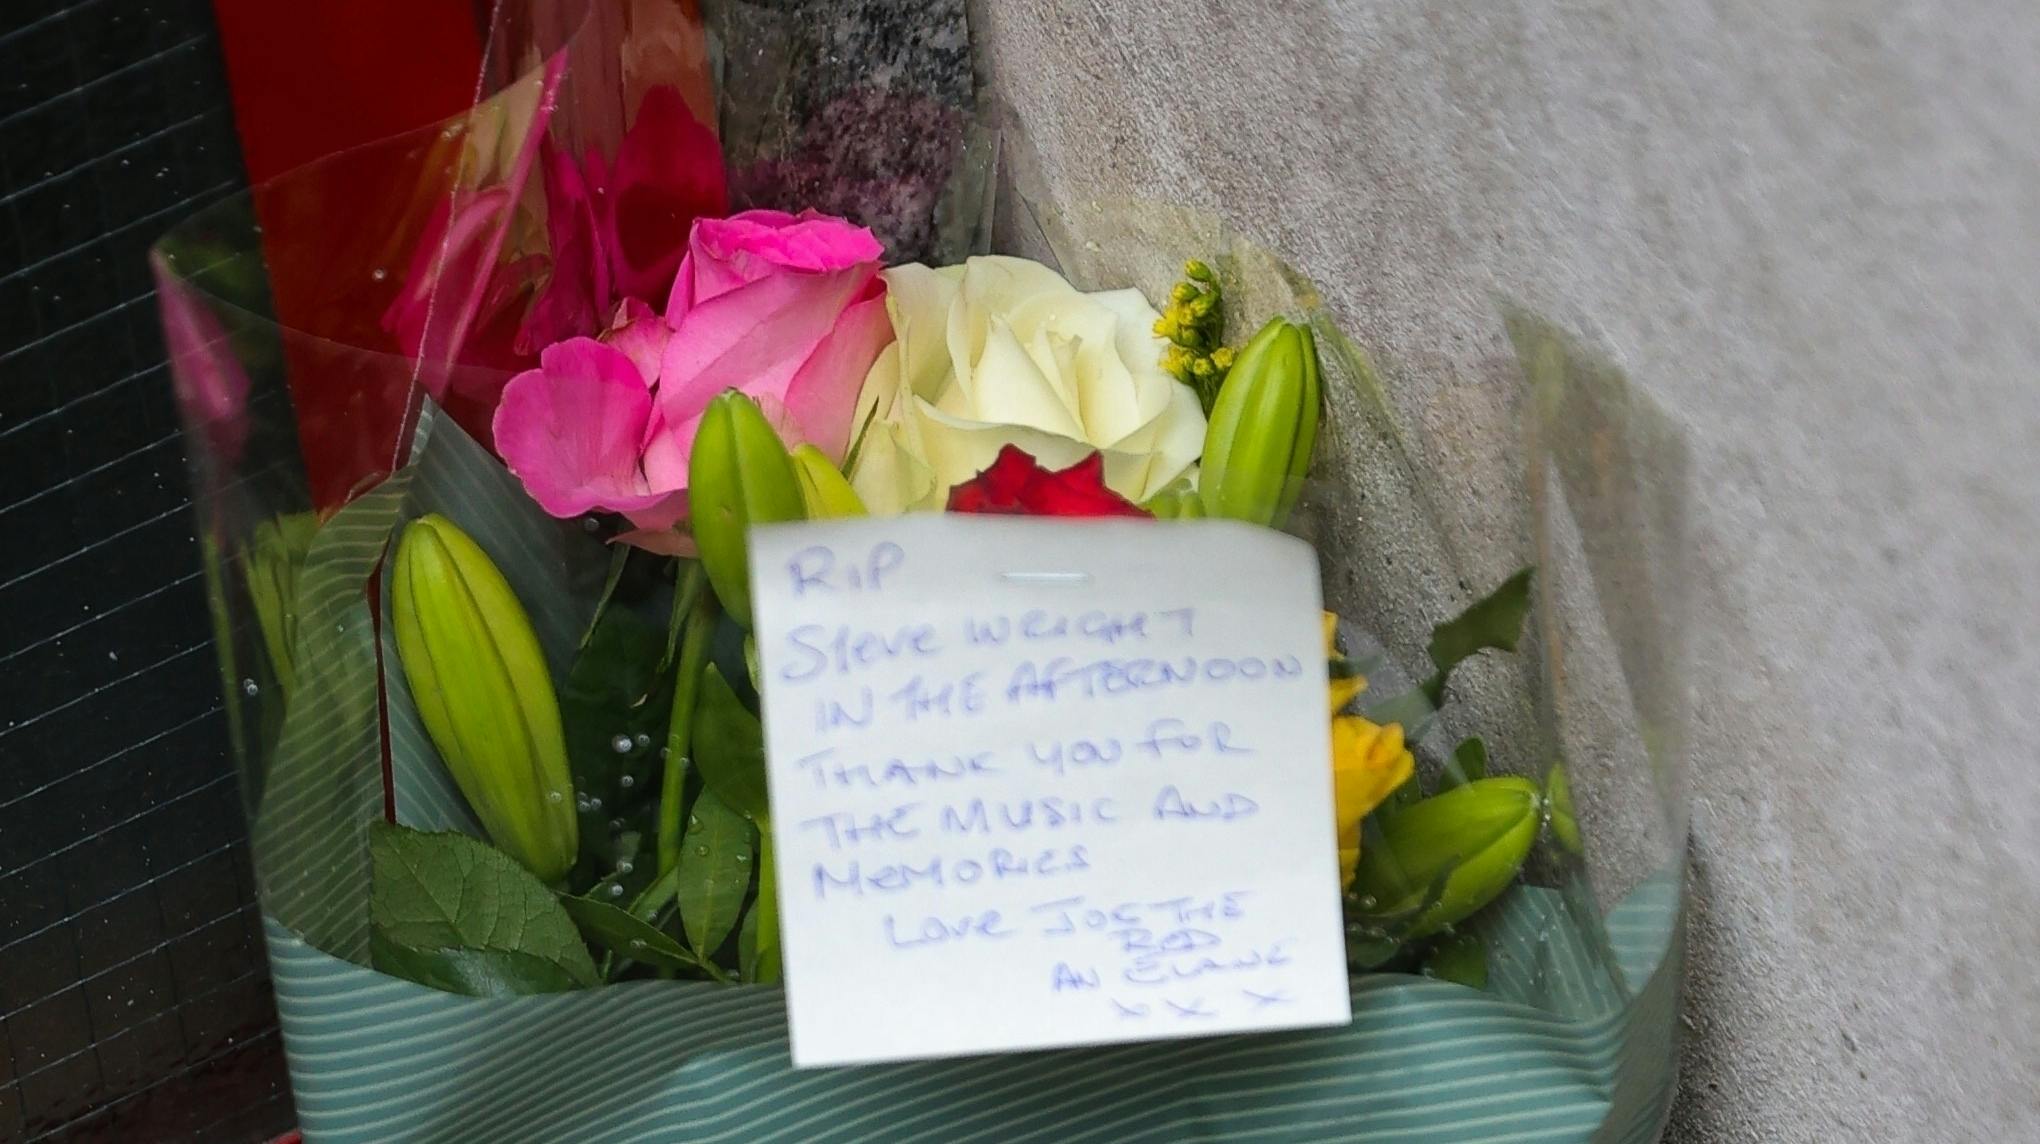 RIP
Steve WRIGHT
IN THE AFTERNOON
THANK YOU FOR
THE MUSIC AND
MEMORIES
Love JOE THE
RED
AN ELANE
x x x